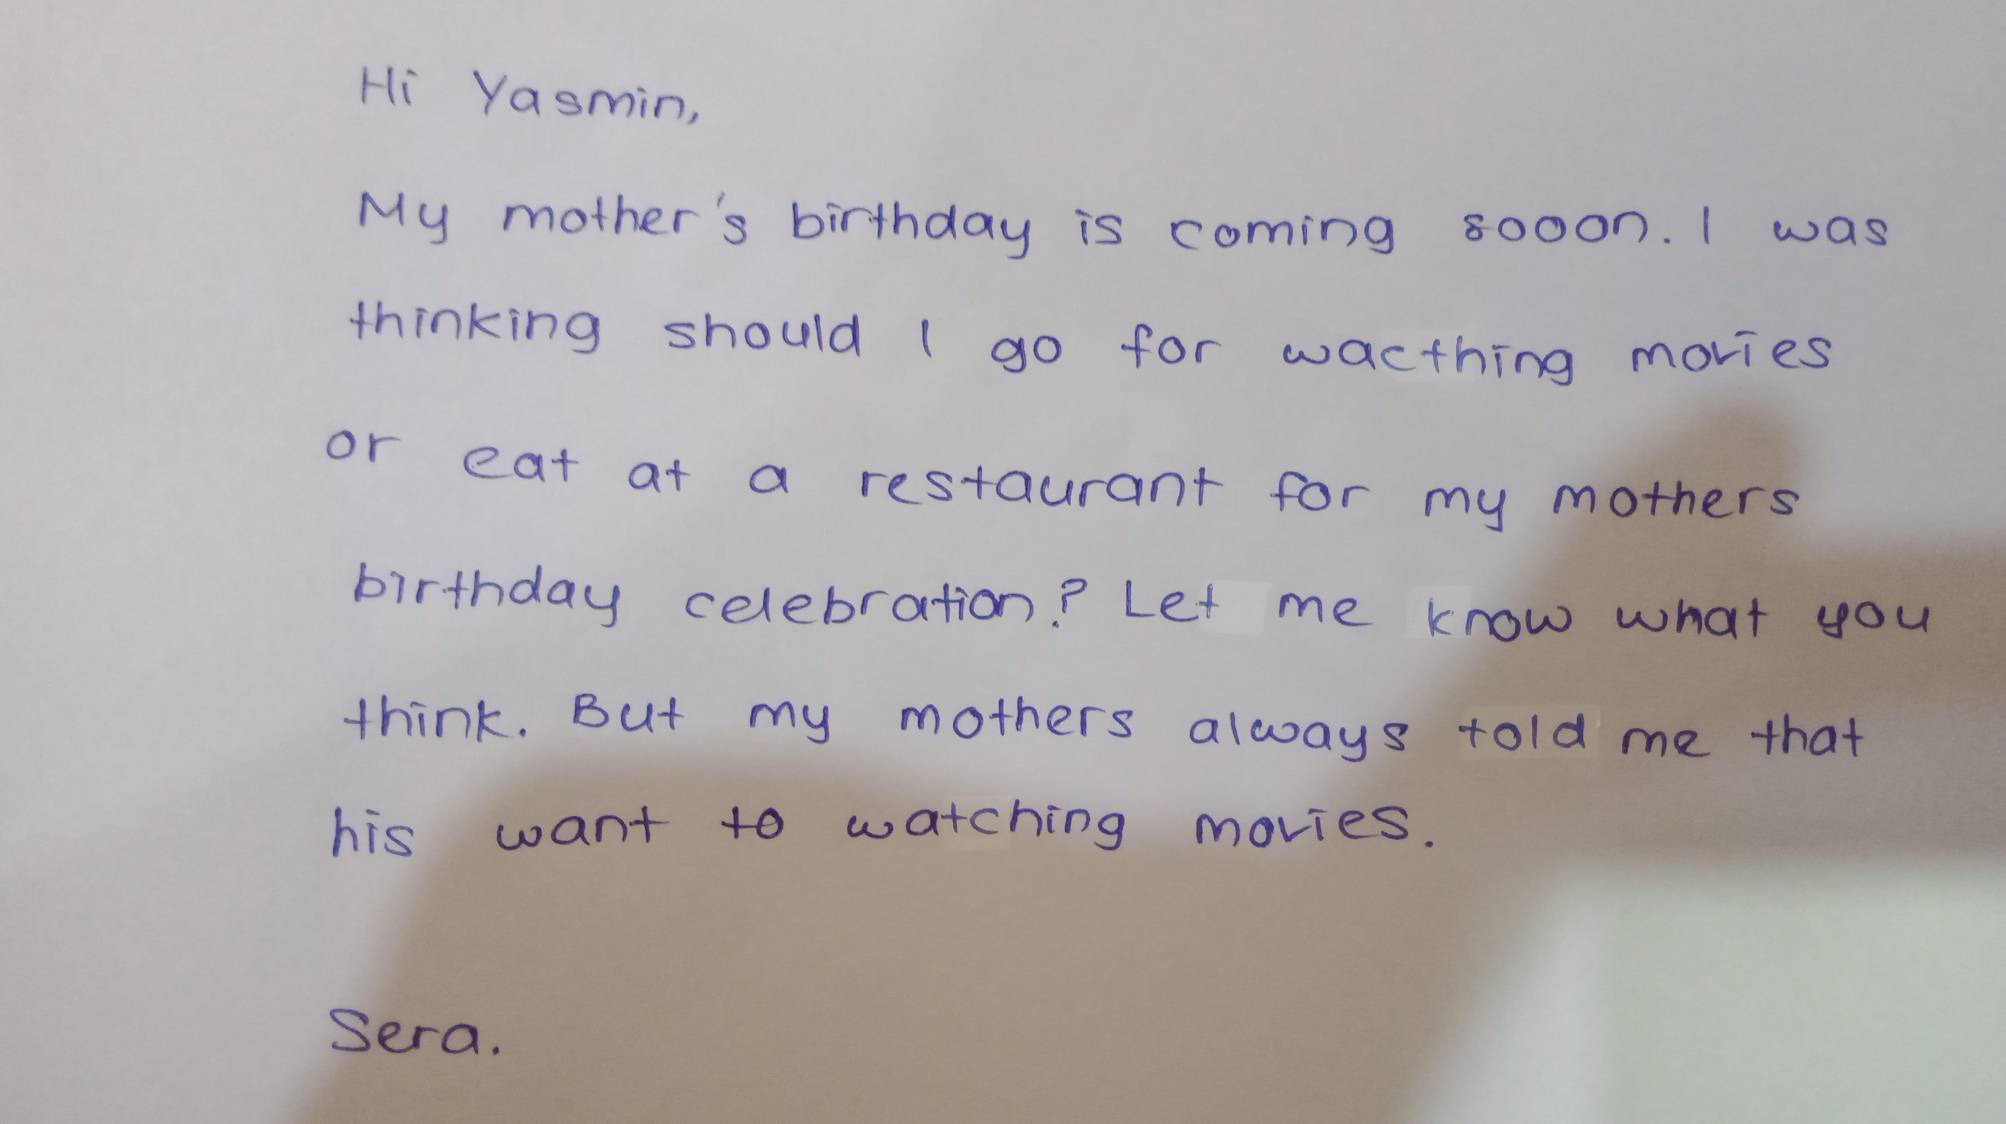 Hi Yasmin,
My mother's birthday is coming sooon. I was
thinking should I go for wacthing movies
or eat at a restaurant for my mothers
birthday celebration? Let me know what you
think. But my mothers always told me that
his want to watching movies.
Sera.